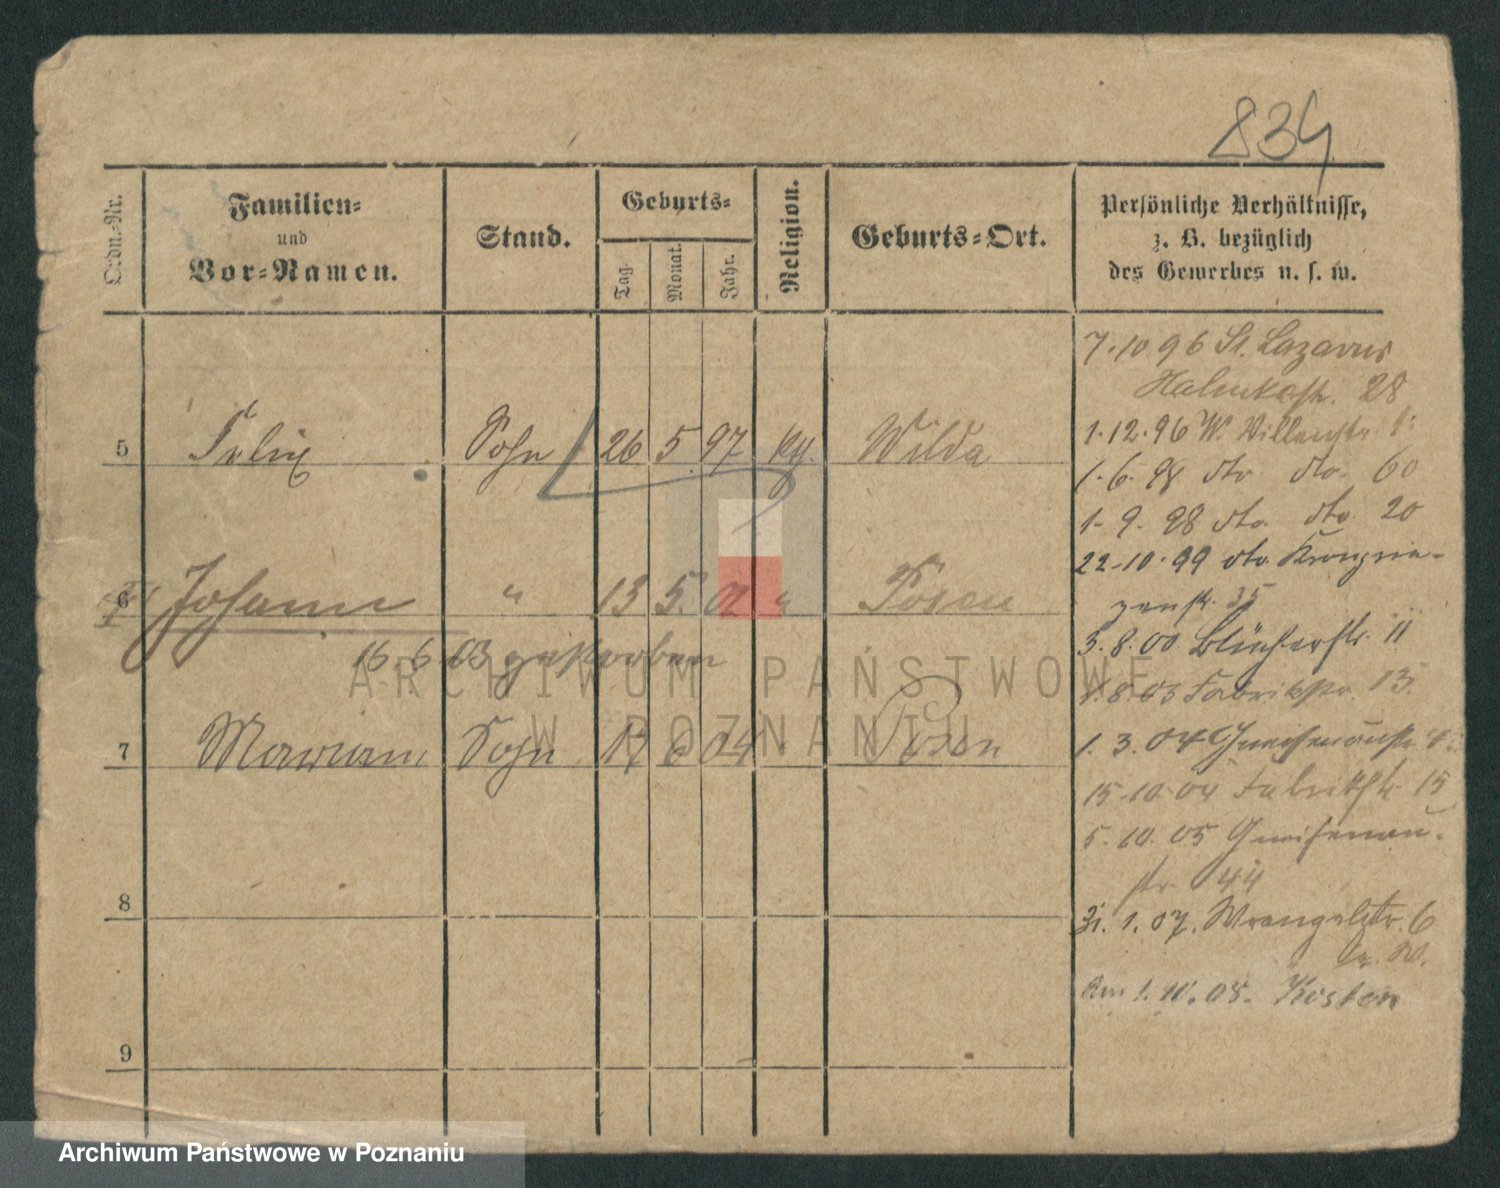 834
Ordn.-Nr.
Familien-
und
Vor-Namen.
Stand.
Geburts-
Tag.
Monat.
Jahr.
Religion.
Geburts-Ort.
Persönliche Verhältnisse,
z. B. bezüglich
des Gewerbes u. s. w.
7.10 96 St. Lazarus
28
5 Felix Sohn 26 5 97 Wilda
1.12.96 W.
1.6.98 dto dto. 60
1.9.98 dto. dto. 20
22.10.99 dto.
35
6 Johann " 13 5 " Posen
3.8.00 Blücherstr. 11
15 6 03 gestorben
1.8.03 Fabrikstr. 13.
7 Marian Sohn 6 04 Posen
1.3.04 Gneisenaustr.
15.10.04 Fabrikstr. 15
5.10.05 Gneisenau-
str. 44
8
1.07. Wrangelstr. 6
Am 1.10.08. Kosten
9
ARCHIWUM PAŃSTWOWE
W POZNANIU
Archiwum Państwowe w Poznaniu